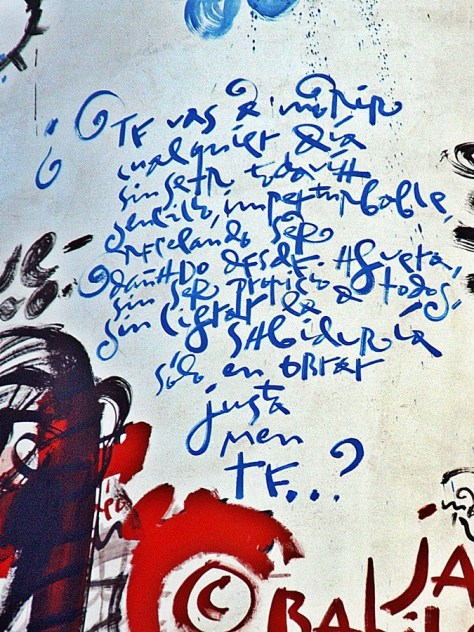 ¿TE vas a morir
cualquier día
sin ser todavía
sencillo, imperturbable,
recelando ser
dañado desde afuera,
sin ser propicio a todos,
sin cifrar la
sabiduría
sólo en obrar
justa
men
TE...?
JA
© BAL